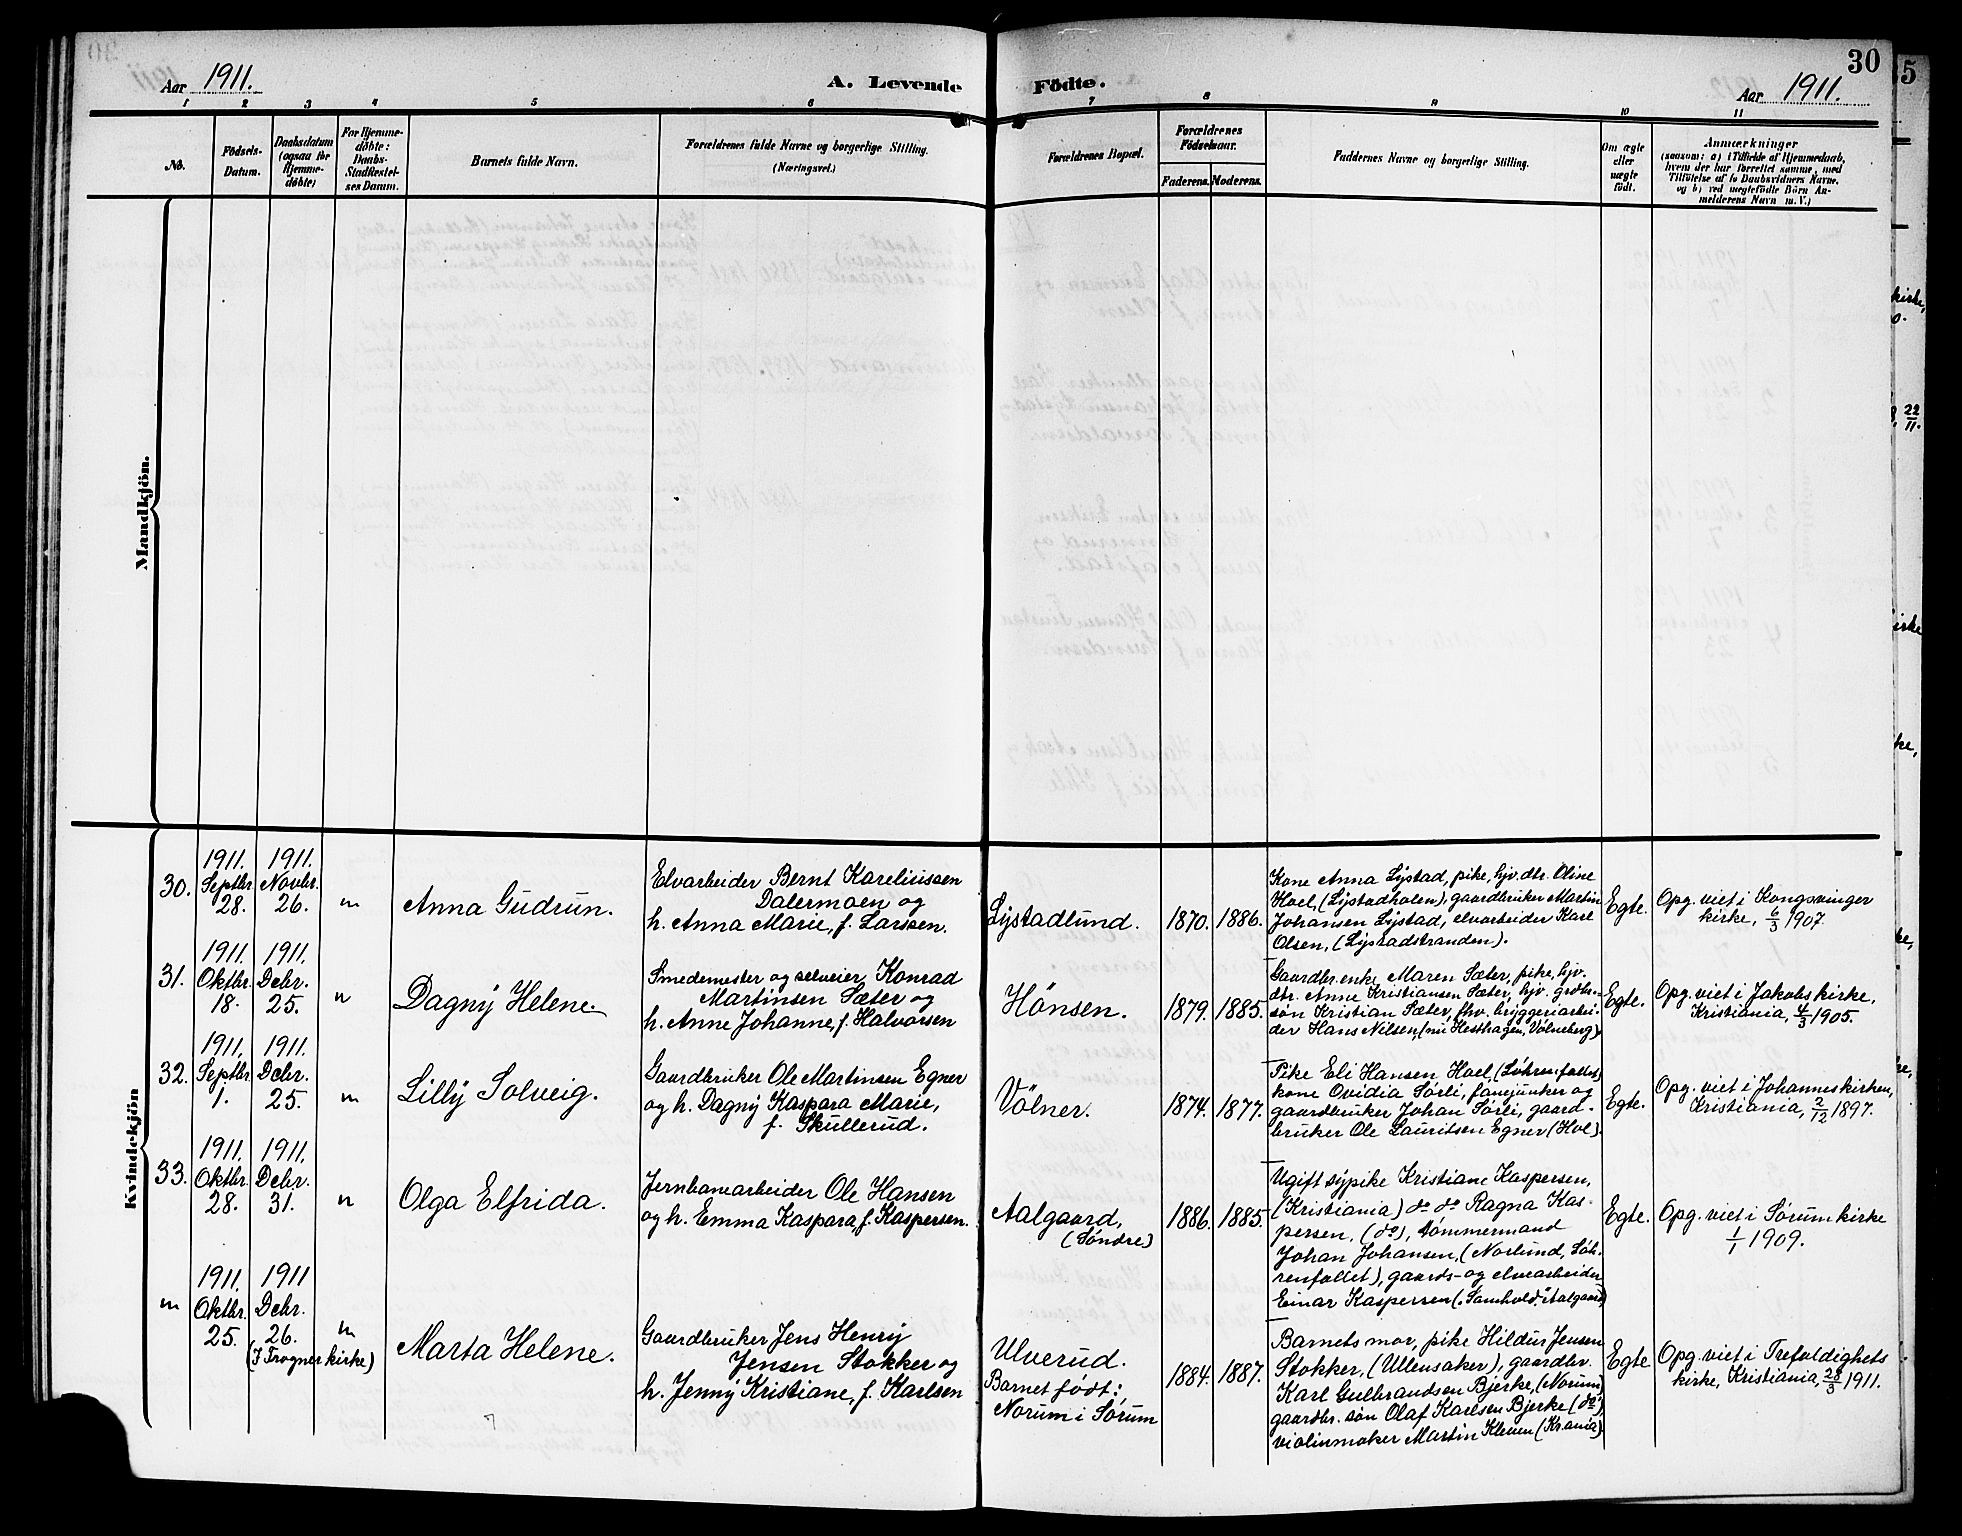 30
Aar 1911. A. Levende Födte. Aar 1911.
1 2 3 4 5 6 7 8 9 10 11
No.
Födsels-
Datum.
Daabsdatum
(ogsaa for
Hjemme-
døbte)
For Hjemme-
døbte:
Daabs-
Stadfæstel-
ses Datum.
Barnets fulde Navn.
Forældrenes fulde Navne og borgerlige Stilling.
(Næringsvei.)
Forældrenes Bopæl.
Forældrenes
Födselsaar.
Faderens. Moderens.
Faddernes Navne og borgerlige Stilling.
Om ægte
eller
uægte
födt.
Anmærkninger
(saasom: a) i Tilfælde af Hjemmedaab,
hvem der har forrettet samme, med
Tilföielse af to Daabsvidners Navne,
og b) ved uægtefödte Börn An-
melderens Navn m. V.)
Mandkjön.
Kvindekjön
30.
1911.
Septbr.
28.
1911.
Novbr.
26.
"
Anna Gudrun.
Elvarbeider Bernt Kareliussen
Dalermoen og
h. Anna Marie, f. Larssen.
Lystadlund.
1870. 1886.
Kone Anna Lystad, pike, hjv. dtr. Oline
Hoel, (Lystadholen), gaardbruker Martin
Johansen Lystad, elvarbeider Karl
Olsen, (Lystadstranden).
Egte.
Opg. viet i Kongsvinger
kirke, 6/3 1907.
31.
1911.
Oktbr.
18.
1911.
Debr.
25.
"
Dagny Helene.
Smedemester og selveier Konrad
Martinsen Sæter og
h. Anne Johanne, f. Halvorsen
Hönsen.
1879. 1885.
Gaardbr. enke Maren Sæter, pike, hjv.
dtr. Anne Kristiansen Sæter, hjv. grdbr.-
søn Kristian Sæter, fhv. bryggeriarbei-
der Hans Nilsen, (nu Hesthagen, Völneberg)
Egte.
Opg. viet i Jakobs kirke,
Kristiania, 4/3 1905.
32.
1911.
Septbr.
1.
1911.
Debr.
25.
"
Lilly Solveig.
Gaardbruker Ole Martinsen Egner
og h. Dagny Kaspara Marie,
f. Skullerud.
Völner.
1874. 1877.
Pike Eli Hansen Hoel, (Löhrenfallet)
kone Ovidia Sörli, fanejunker og
gaardbruker Johan Sörli, gaard-
bruker Ole Lauritsen Egner (Hol).
Egte.
Opg. viet i Johanneskirken,
Kristiania, 2/12 1897.
33.
1911.
Oktbr.
28.
1911.
Debr.
31.
"
Olga Elfrida.
Jernbanearbeider Ole Hansen
og h. Emma Kaspara, f. Kaspersen.
Aalgaard,
(Söndre)
1886. 1885.
Ugift sypike Kristiane Kaspersen,
(Kristiania) do do Ragna Kas-
persen, (do), tömmermand
Johan Johansen, (Norlund, Löh-
renfallet), gaards- og elvearbeider
Einar Kaspersen ("Samhold" i Aalgaard)
Egte.
Opg. viet i Sörum kirke
1/1 1909.
"
1911.
Oktbr.
25.
1911
Debr.
26.
(I Frogner kirke)
"
Marta Helene.
Gaardbruker Jens Henry
Jensen Stokker og
h. Jenny Kristiane, f. Karlsen
Ulverud.
Barnet født:
Norum i Sörum
1884. 1887.
Barnets mor, pike Hildur Jensen
Stokker, (Ullensaker), gaardbr.
Karl Gulbrandsen Bjerke, (Norum),
gaardbr. søn Olaf Karlsen Bjerke (do),
violinmaker Martin Kleven (Kr.ania)
Egte
Opg. viet i Trefoldighets
kirke, Kristiania, 28/3 1911.